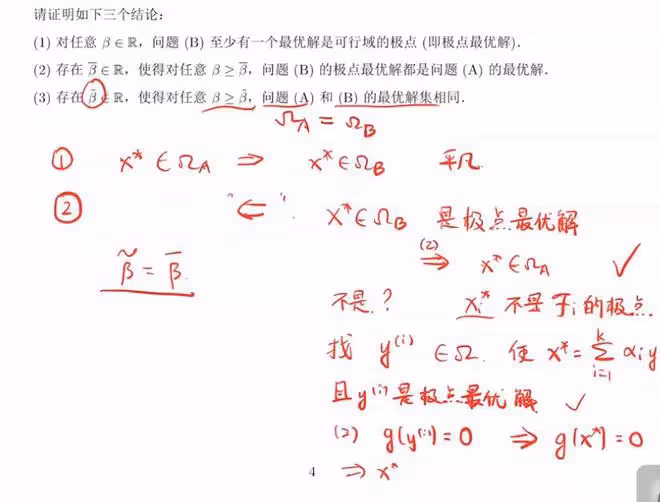 请证明如下三个结论:
(1) 对任意 β ∈ ℝ, 问题 (B) 至少有一个最优解是可行域的极点 (即极点最优解).
(2) 存在 β̅ ∈ ℝ, 使得对任意 β ≥ β̅, 问题 (B) 的极点最优解都是问题 (A) 的最优解.
(3) 存在 β̃ ∈ ℝ, 使得对任意 β ≥ β̃, 问题 (A) 和 (B) 的最优解集相同.
Ω_A = Ω_B
① x* ∈ Ω_A ⇒ x* ∈ Ω_B 平凡.
② "⇐" x* ∈ Ω_B 是极点最优解
(2) ⇒ x* ∈ Ω_A ✓
β̃ = β̅.
不是? x_i* 不是 i 的极点.
找 y^(i) ∈ Ω. 使 x* = Σ_{i=1}^{k} α_i y
且 y^(i) 是极点最优解 ✓
(2) g(y^(i)) = 0 ⇒ g(x*) = 0
⇒ x*
4